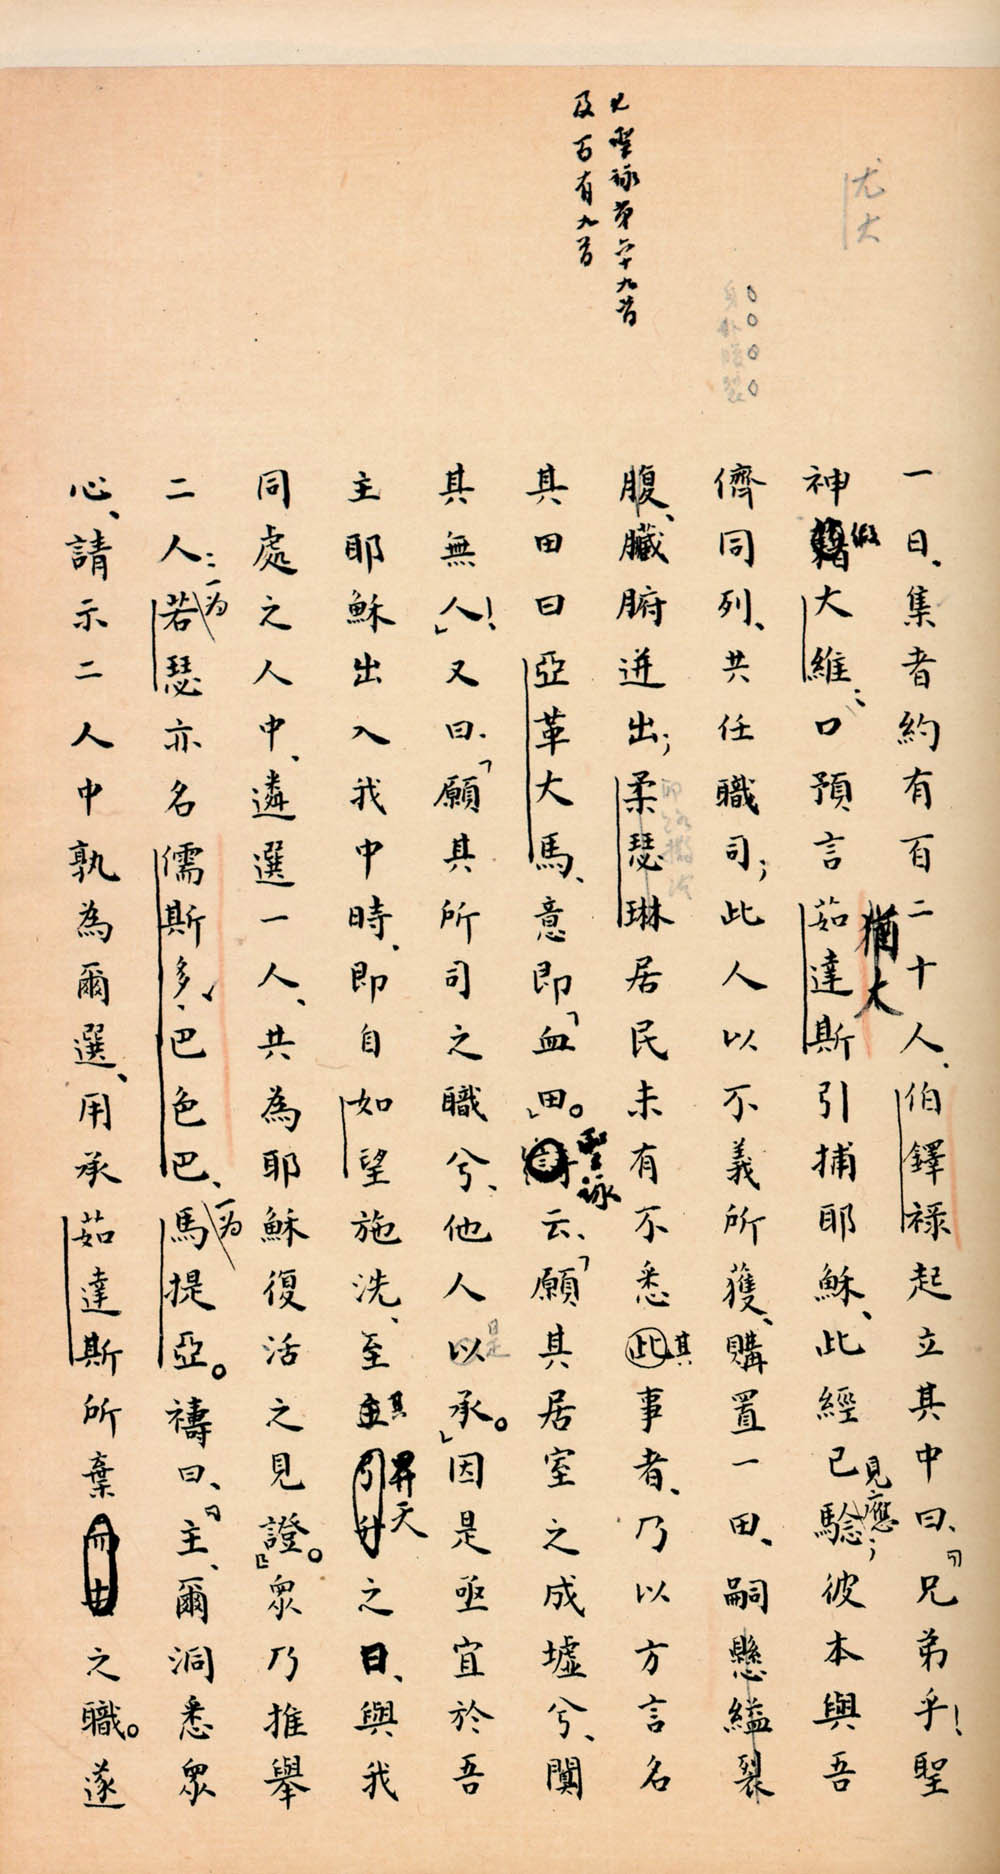 尤大
見聖詠第六十九首
及百有九首
身仆腹裂
一日、集者約有百二十人、伯鐸祿起立其中曰、「兄弟乎！聖
神假大維口預言茹達斯引捕耶穌、此經已驗；彼本與吾
猶大
見應
儕同列、共任職司；此人以不義所獲、購置一田、嗣懸縊裂
腹、臟腑迸出；柔瑟琳居民未有不悉此事者、乃以方言名
耶路撒冷
其
其田曰亞革大馬、意即「血田」。詩云、「願其居室之成墟兮、闃
聖詠
其無人！」又曰、「願其所司之職兮、他人以承。」因是亟宜於吾
是
主耶穌出入我中時、即自如望施洗、至主引升之日、與我
其
昇天
同處之人中、遴選一人、共為耶穌復活之見證。」眾乃推舉
二人：若瑟亦名儒斯多、巴色巴、馬提亞。禱曰、「主、爾洞悉眾
一為
一為
心、請示二人中孰為爾選、用承茹達斯所棄之職。遂